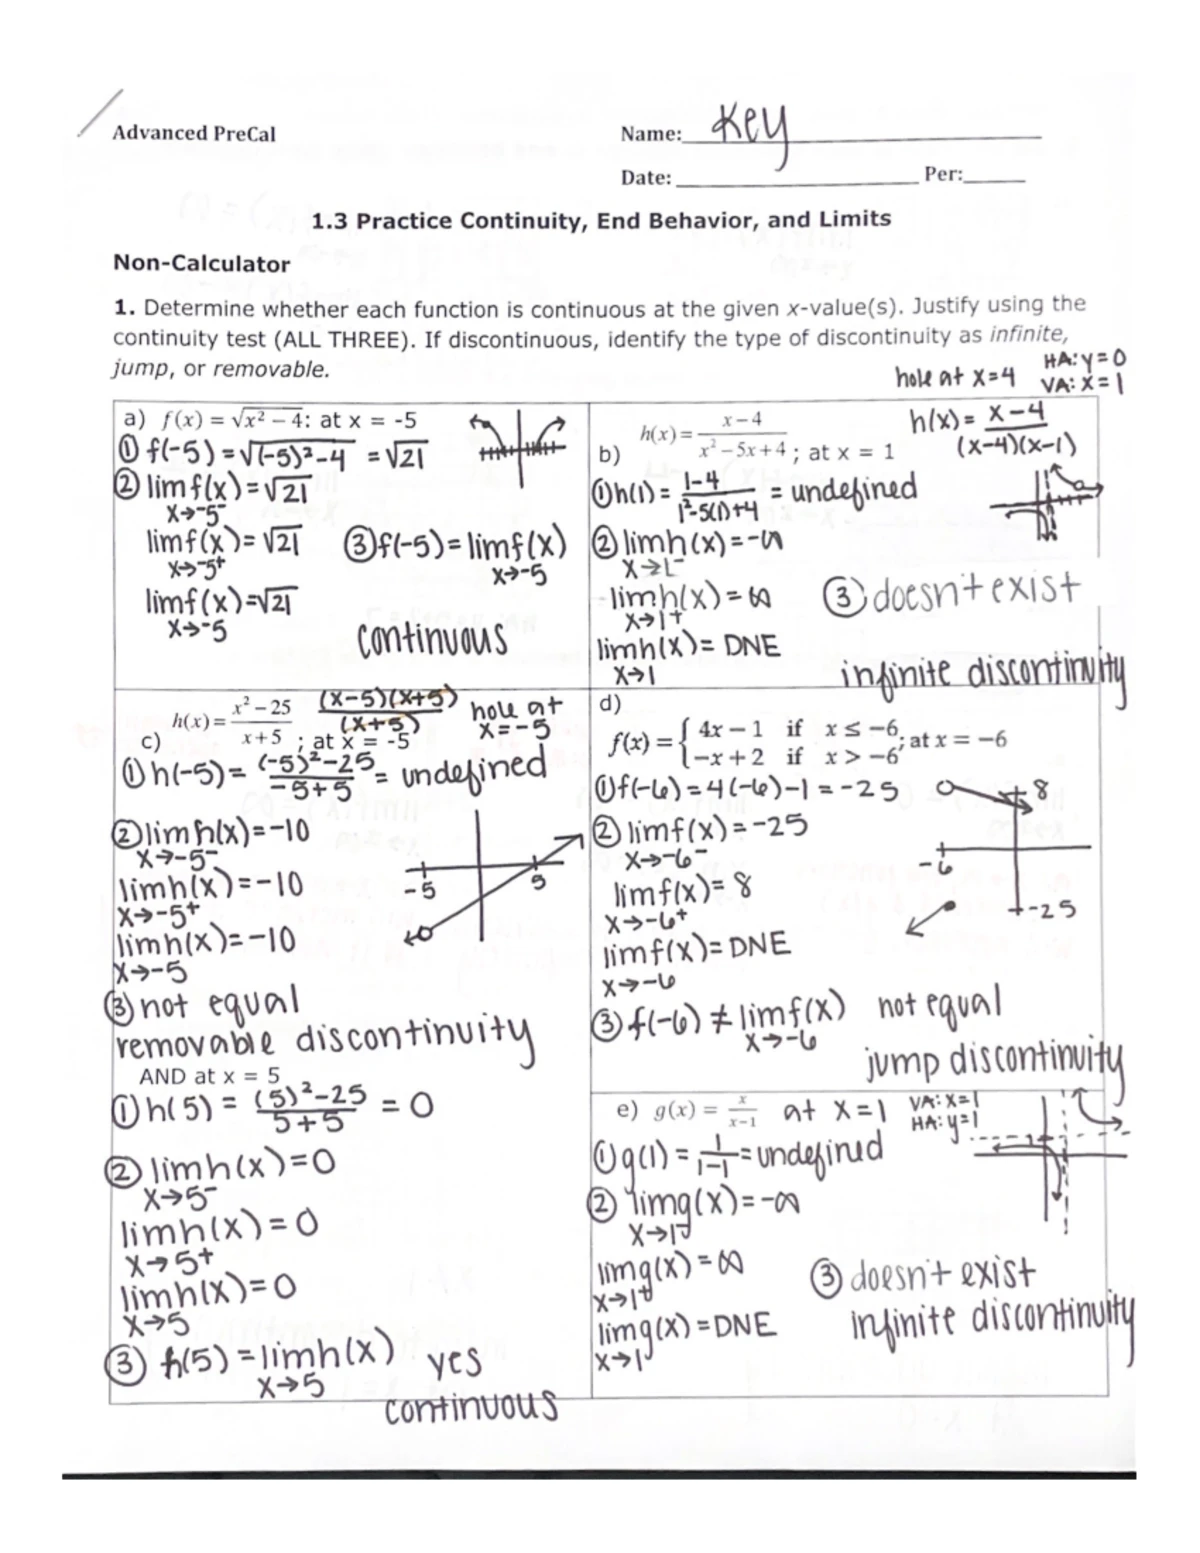 Advanced PreCal
Name: Key
Date: Per:
1.3 Practice Continuity, End Behavior, and Limits
Non-Calculator
1. Determine whether each function is continuous at the given x-value(s). Justify using the
continuity test (ALL THREE). If discontinuous, identify the type of discontinuity as infinite,
jump, or removable.
hole at x=4
HA: y=0
VA: x=1
a) f(x) = √x² – 4: at x = -5
① f(-5) = √(-5)²-4 = √21
② lim f(x) = √21
x→-5⁻
lim f(x) = √21
x→-5⁺
lim f(x) = √21
x→-5
③ f(-5) = lim f(x)
x→-5
continuous
b) h(x) = x – 4 / x² – 5x + 4 ; at x = 1
h(x) = x-4 / (x-4)(x-1)
① h(1) = 1-4 / 1²-5(1)+4 = undefined
② lim h(x) = -∞
x→1⁻
lim h(x) = ∞
x→1⁺
lim h(x) = DNE
x→1
③ doesn't exist
infinite discontinuity
c) h(x) = x² – 25 / x + 5 ; at x = -5
(x-5)(x+5) / (x+5)
hole at
x=-5
① h(-5) = (-5)²-25 / -5+5 = undefined
② lim h(x) = -10
x→-5⁻
lim h(x) = -10
x→-5⁺
lim h(x) = -10
x→-5
-5 5
③ not equal
removable discontinuity
AND at x = 5
① h(5) = (5)²-25 / 5+5 = 0
② lim h(x) = 0
x→5⁻
lim h(x) = 0
x→5⁺
lim h(x) = 0
x→5
③ h(5) = lim h(x) yes
x→5
continuous
d)
f(x) = { 4x – 1 if x ≤ –6
–x + 2 if x > –6 ; at x = –6
① f(-6) = 4(-6)-1 = -25
② lim f(x) = -25
x→-6⁻
lim f(x) = 8
x→-6⁺
lim f(x) = DNE
x→-6
8
-6
-25
③ f(-6) ≠ lim f(x) not equal
x→-6
jump discontinuity
e) g(x) = x / x–1 at x=1
VA: x=1
HA: y=1
① g(1) = 1 / 1-1 = undefined
② lim g(x) = -∞
x→1⁻
lim g(x) = ∞
x→1⁺
lim g(x) = DNE
x→1
1
③ doesn't exist
infinite discontinuity